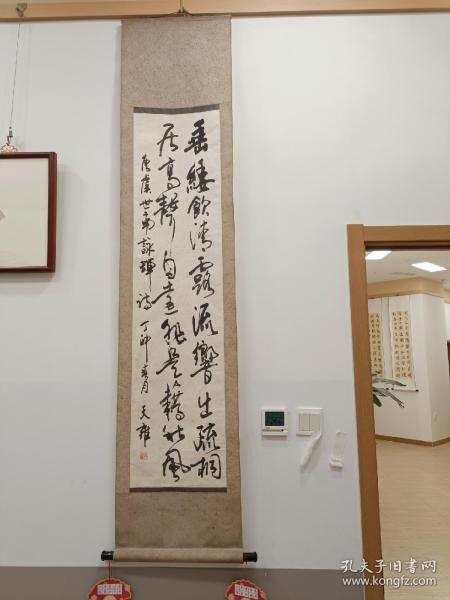 垂緌飲清露流響生疏桐
居高聲自遠非是藉秋風
唐虞世南詠蟬詩 丁卯春月 天雄
孔夫子旧书网
www.kongfz.com